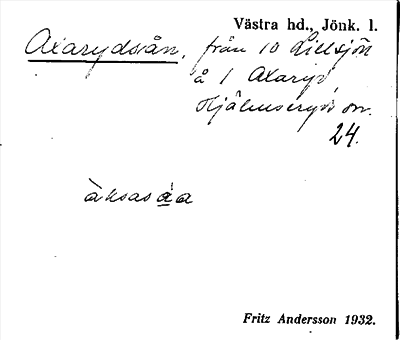 Västra hd., Jönk. l.
Axarydsån, från 10 Lillsjön
å 1 Axaryd,
Hjälmseryds sn.
24.
àksasáa
Fritz Andersson 1932.